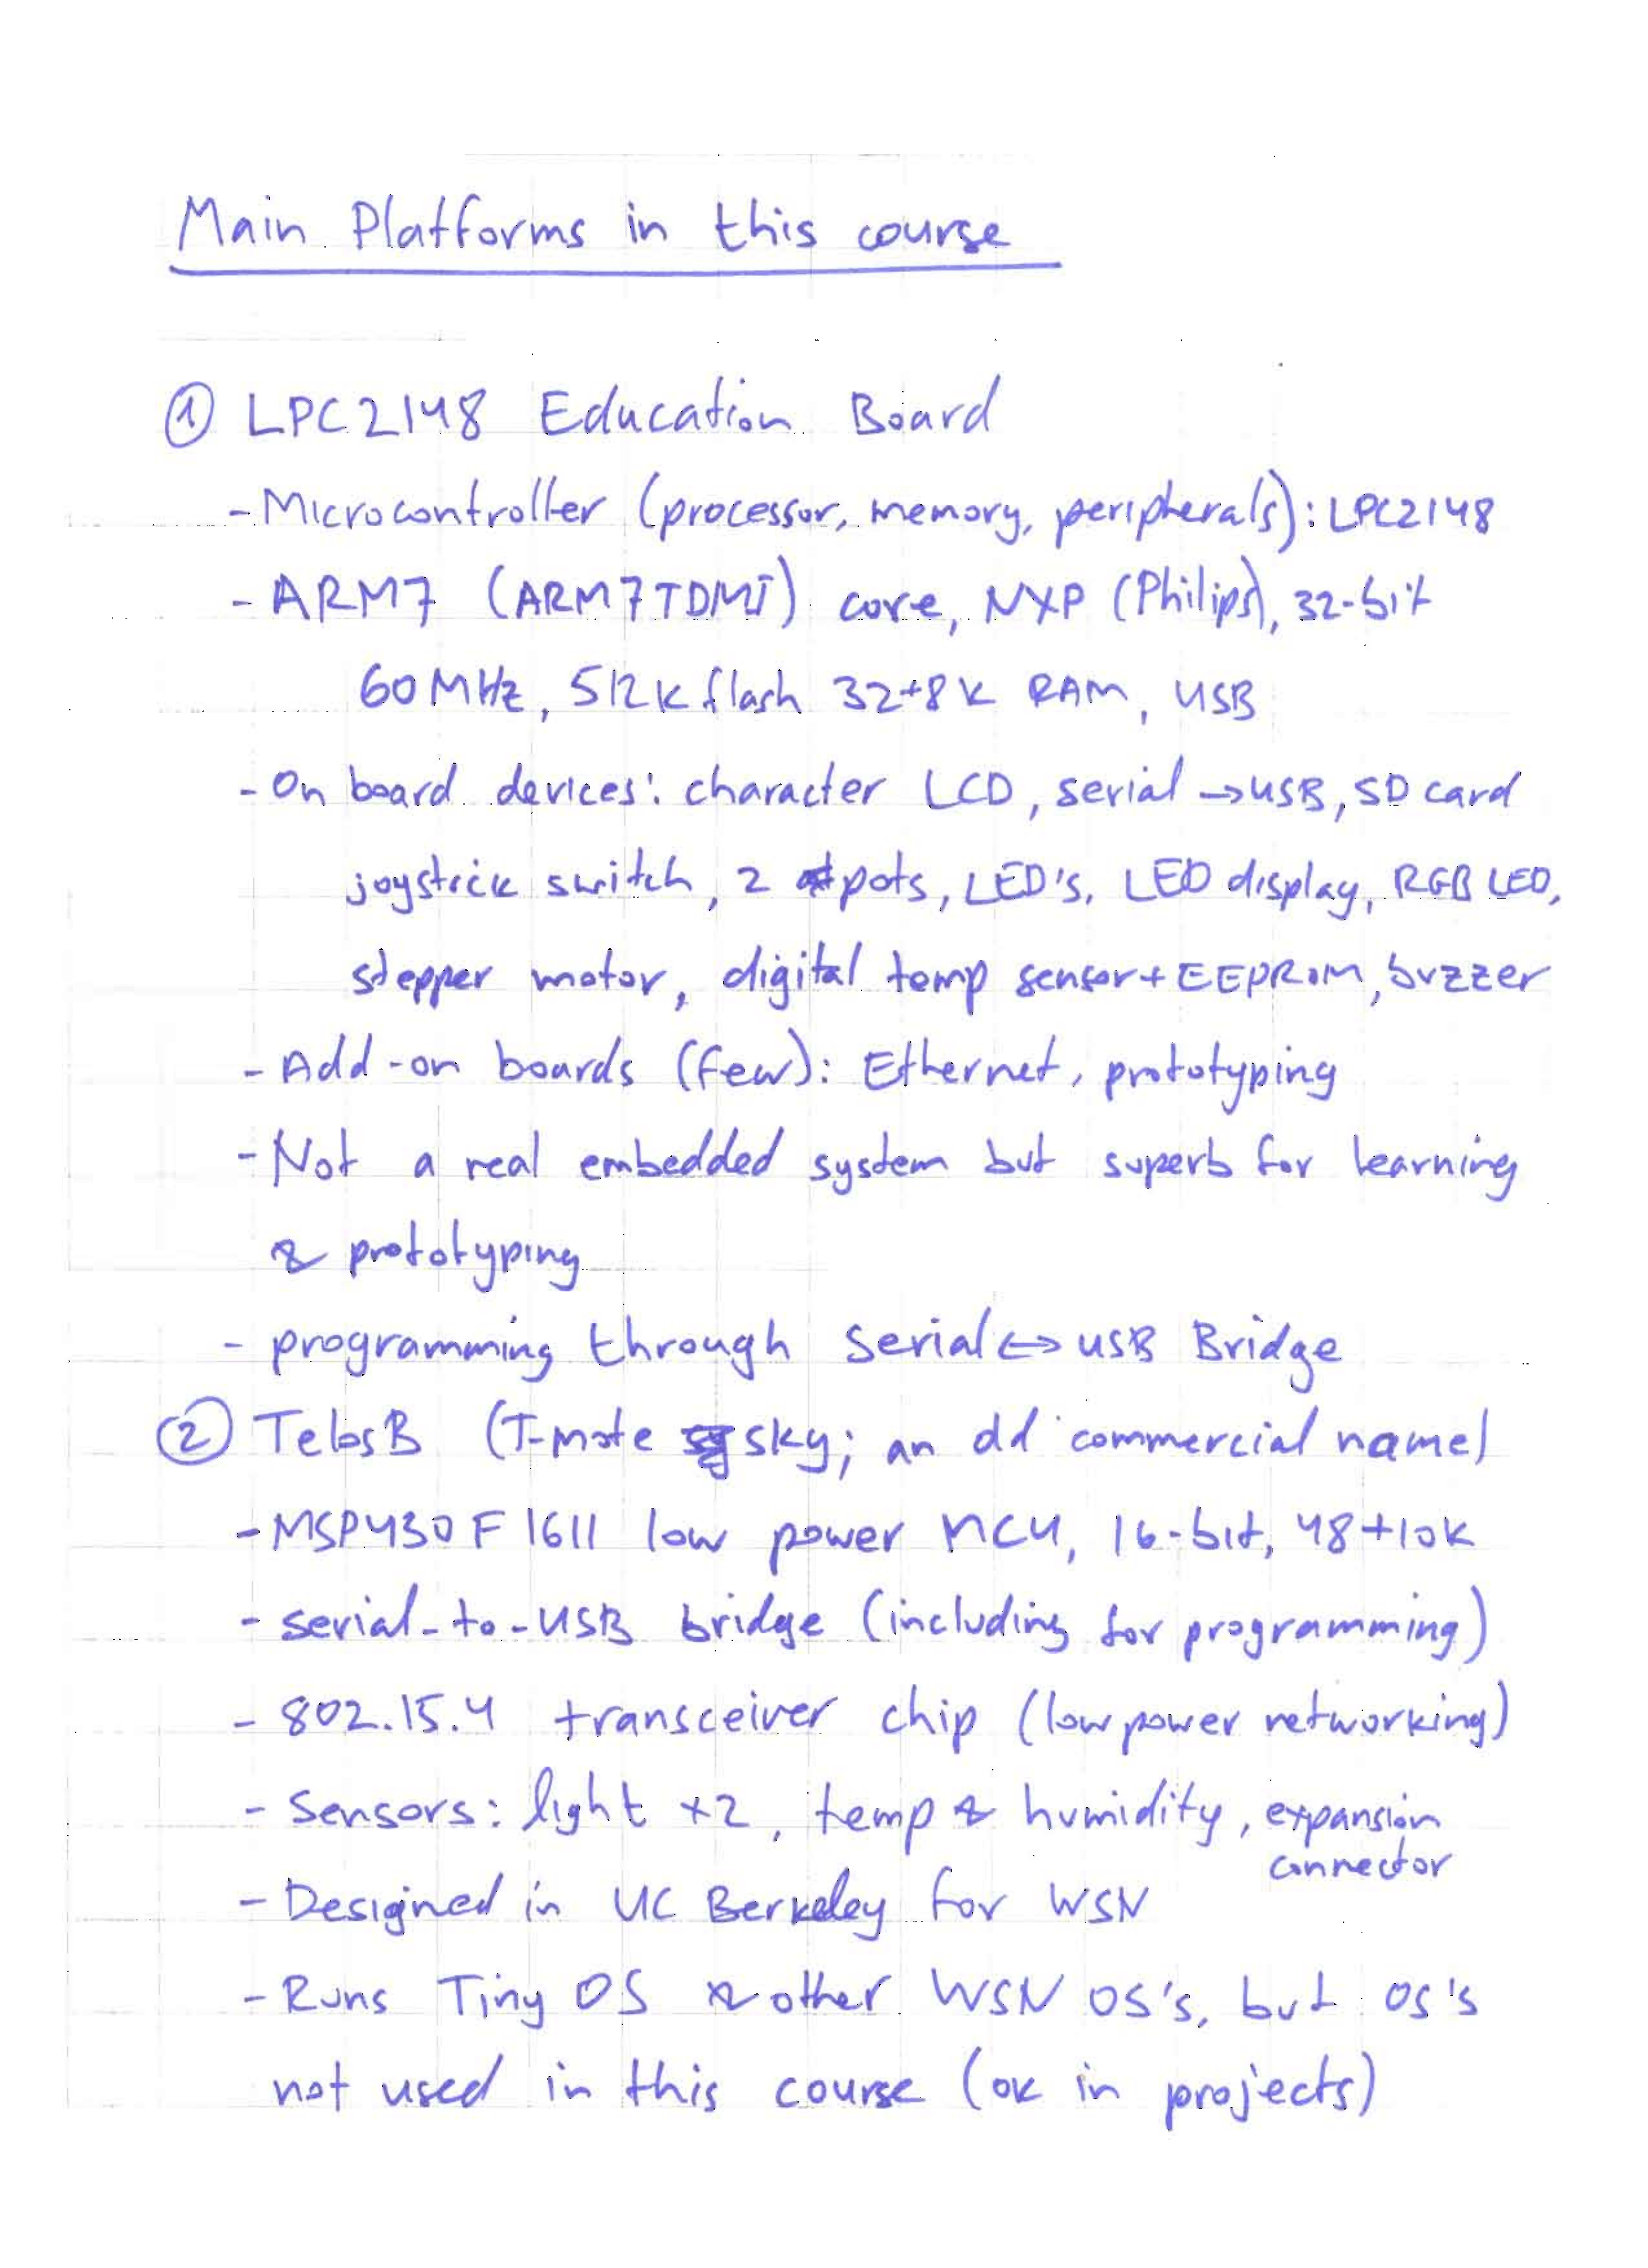 Main Platforms in this course
① LPC2148 Education Board
- Microcontroller (processor, memory, peripherals): LPC2148
- ARM7 (ARM7TDMI) core, NXP (Philips), 32-bit
60MHz, 512K flash 32+8K RAM, USB
- On board devices: character LCD, serial → USB, SD card
joystick switch, 2 pots, LED's, LED display, RGB LED,
stepper motor, digital temp sensor + EEPROM, buzzer
- Add-on boards (few): Ethernet, prototyping
- Not a real embedded system but superb for learning
& prototyping
- programming through Serial ↔ USB Bridge
② TelosB (T-mote sky; an old commercial name)
- MSP430F1611 low power MCU, 16-bit, 48+10K
- serial-to-USB bridge (including for programming)
- 802.15.4 transceiver chip (low power networking)
- Sensors: light x2, temp & humidity, expansion
connector
- Designed in UC Berkeley for WSN
- Runs Tiny OS & other WSN OS's, but OS's
not used in this course (ok in projects)